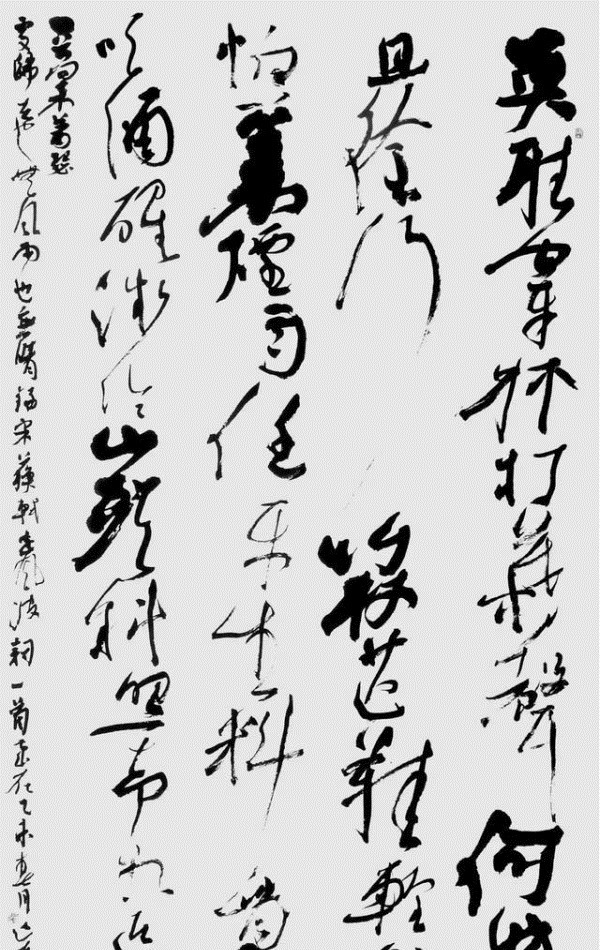 莫聽穿林打葉聲何妨
且徐行竹杖芒鞋輕
怕一蓑煙雨任平生料
吹酒醒微冷山頭斜照却相迎
向來蕭瑟
處歸去也無風雨也無晴錄宋蘇軾定風波詞一首乙未春月